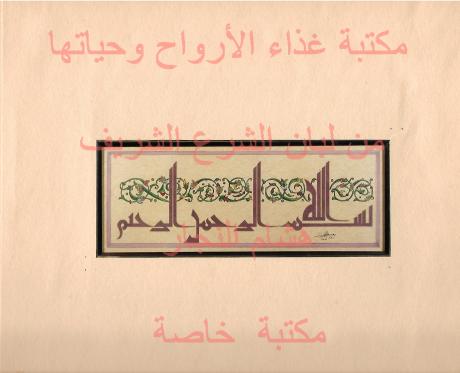 مكتبة غذاء الأرواح وحياتها
من لبان الشرع الشريف
بسم الله الرحمن الرحيم
هشام النجار
مكتبة خاصة